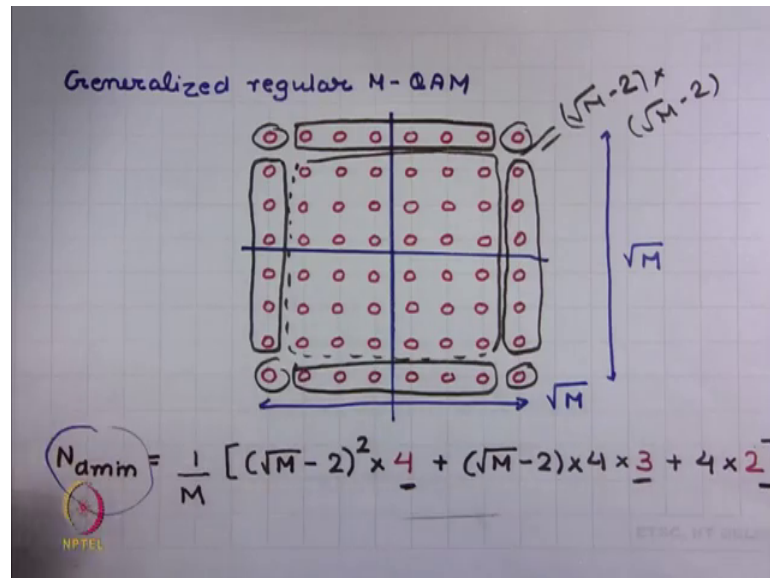 Generalized regular M-QAM
(√M-2)×
(√M-2)
√M
√M
Ndmin = 1/M [(√M-2)² × 4 + (√M-2) × 4 × 3 + 4 × 2]
NPTEL